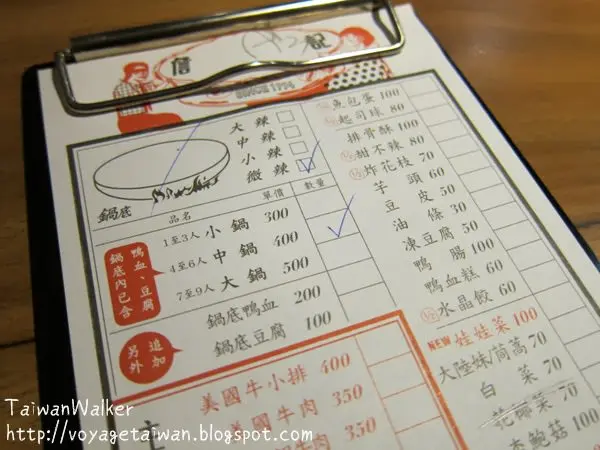 詹 記
SINCE 1974
大辣
中辣
小辣
微辣
鍋底
品名 單價 數量
1至3人 小鍋 300
4至6人 中鍋 400
7至9人 大鍋 500
鍋底內已含 鴨血、豆腐
鍋底鴨血 200
鍋底豆腐 100
另外追加
美國牛小排 400
美國牛肉 350
牛肉 350
魚包蛋 100
起司球 80
排骨酥 100
甜不辣 80
炸花枝 70
芋頭 60
豆皮 50
油條 30
凍豆腐 50
鴨腸 100
鴨血糕 60
水晶餃 60
NEW 娃娃菜 100
大陸妹/茼萵 70
白菜 70
花椰菜 70
杏鮑菇 100
TaiwanWalker
http://voyagetaiwan.blogspot.com/